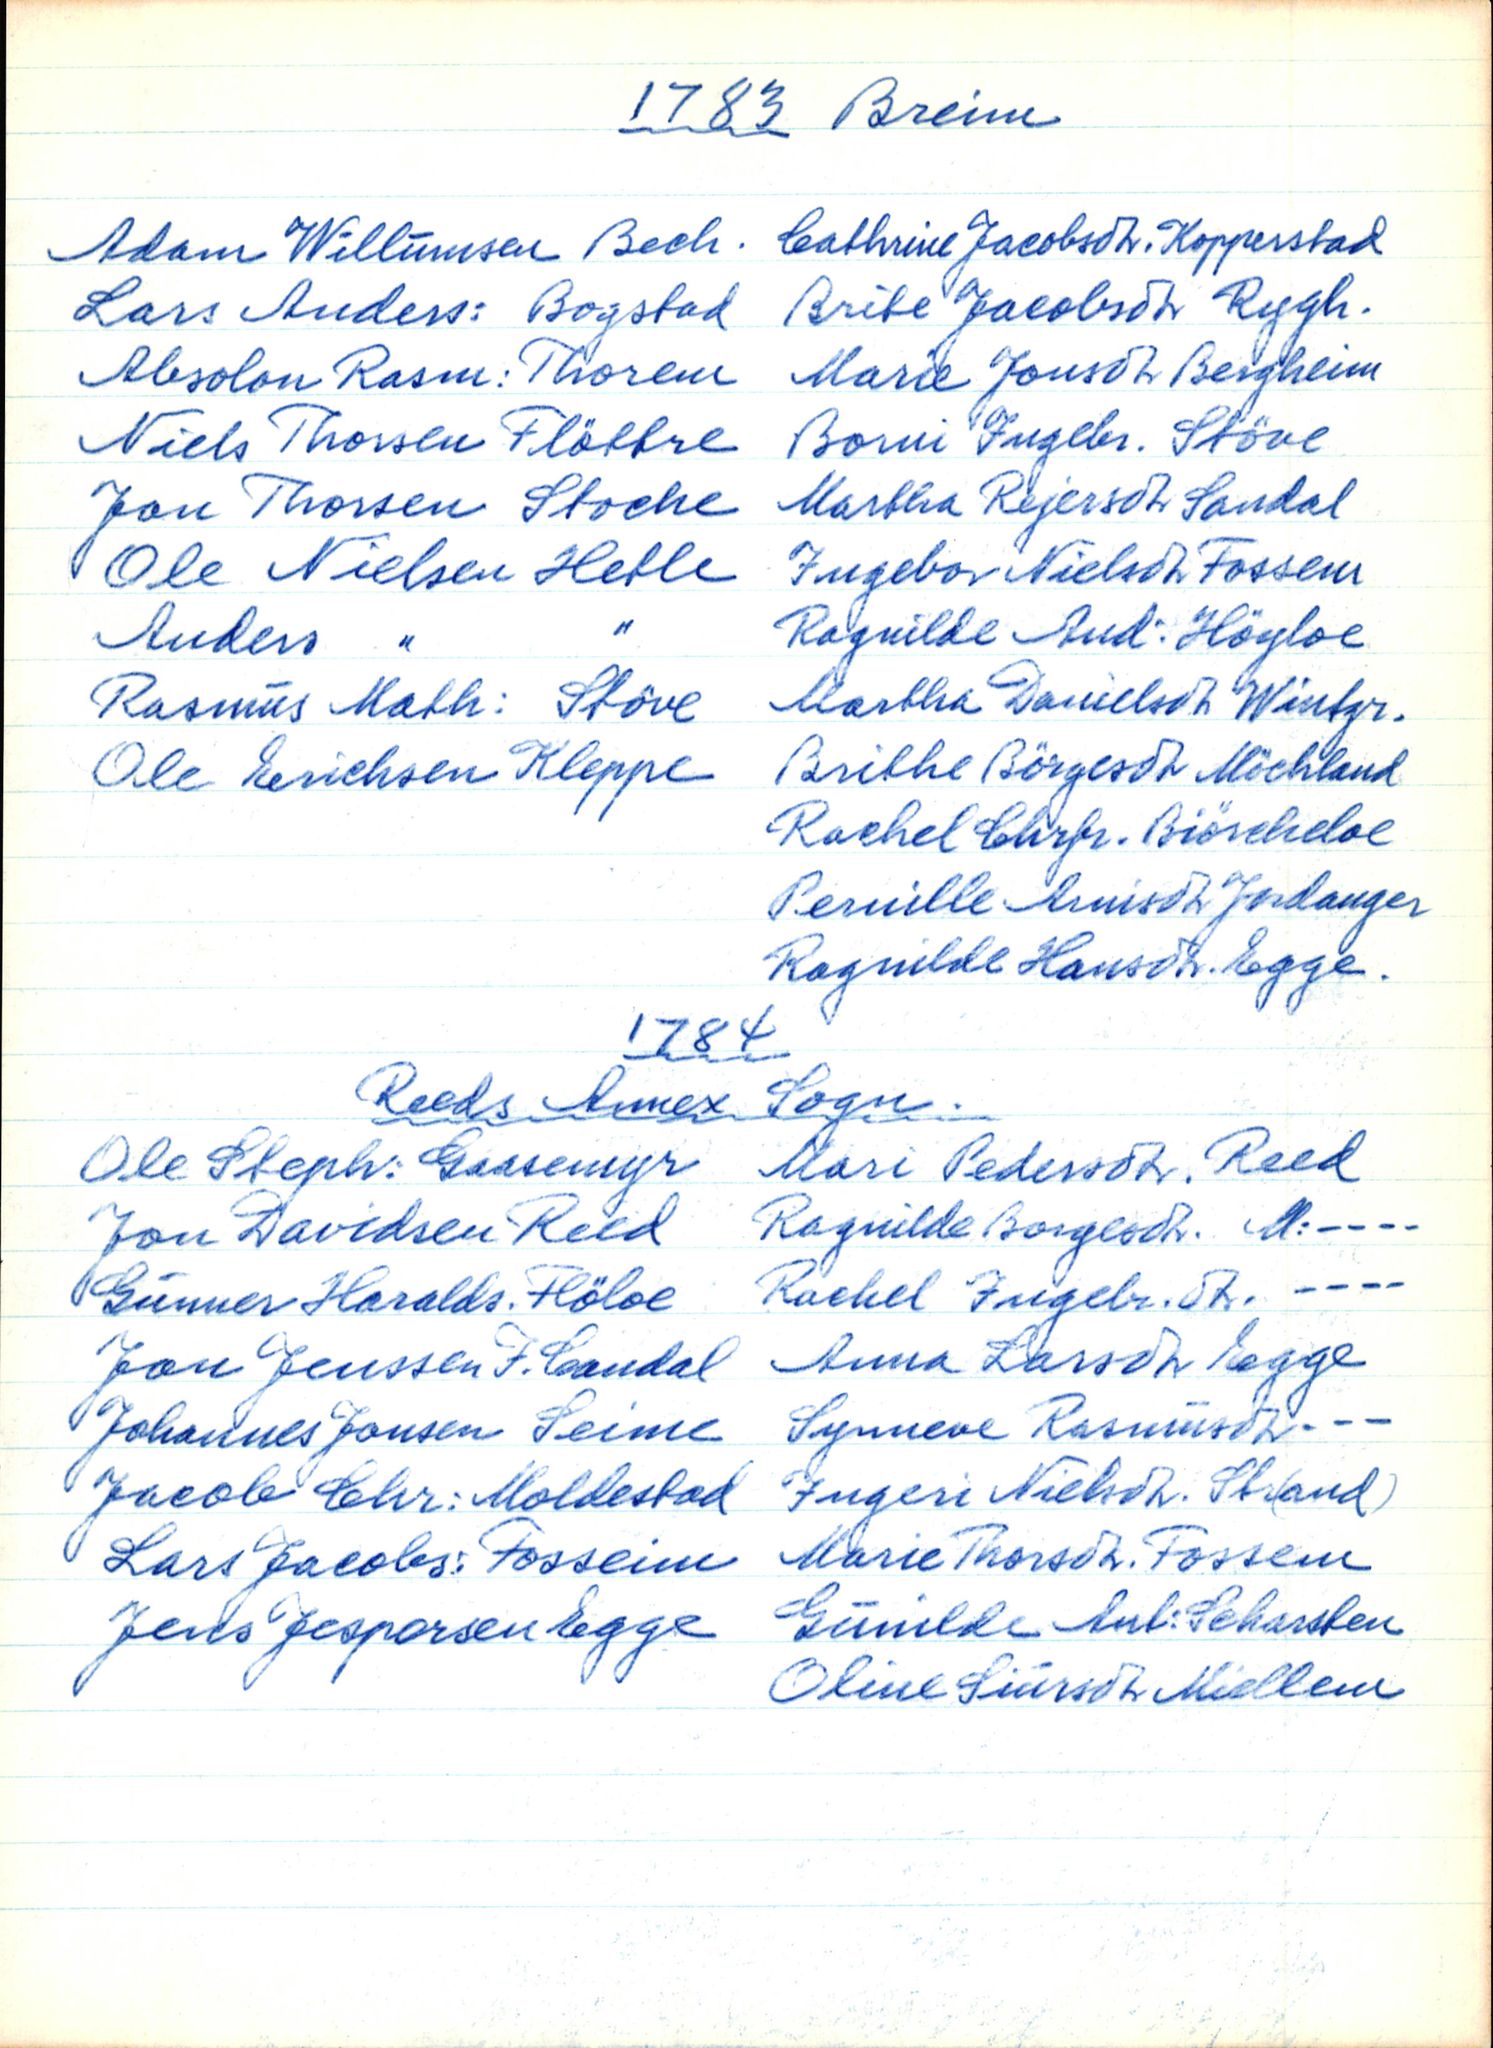 1783 Breim
Adam Willumsen Bech. Cathrine Jacobsdtr. Kopperstad
Lars Anders: Bogstad Brite Jacobsdtr Rygh.
Absolon Rasm: Thorem Marie Jonsdtr Bergheim
Niels Thorsen Flöttre Borni Ingebr. Stöve
Jon Thorsen Stoche Martha Rejersdtr Sandal
Ole Nielsen Hetle Ingebor Nielsdtr Fossem
Anders " " Ragnilde And: Höyloe
Rasmŭs Math: Stöve Martha Danielsdtr Wintgr.
Ole Erichsen Kleppe Brithe Börgesdtr Möchland
Rachel Chrfr. Biörcheloe
Pernille Arnisdtr Jordanger
Ragnilde Hansdtr. Egge.
1784
Reeds Annex Sogn.
Ole Steph: Gaasemyr Mari Pedersdtr. Reed
Jon Davidsen Reed Ragnilde Borgesdtr. M:----
Gŭnner Haralds. Flöloe Rachel Ingebr. dtr. ----
Jon Jenssen F. Candal Anna Larsdtr Egge
Johannes Jonsen Seime Synneve Rasmŭsdtr ---
Jacob Chr: Moldestad Ingeri Nielsdtr. Str(and)
Lars Jacobs: Fosseim Marie Thorsdtr. Fossem
Jens Jespersen Egge Gŭnilde Ant: Scharsten
Oline Siŭrsdtr Miellem